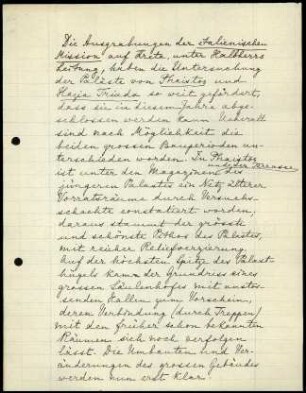 Die Ausgrabungen der italienischen
Mission auf Kreta, unter Halbherrs
Leitung, haben die Untersuchung
der Paläste von Phaistos und
Hagia Triada so weit gefördert,
dass sie in diesem Jahre abge-
schlossen werden kann. Ueberall
sind nach Möglichkeit die
beiden grossen Bauperioden un-
terschieden worden. In Phaistos
ist unter den Magazinen des
jüngeren Palastes ein Netz älterer
Vorratsräume durch Versuchs-
schachte constatiert worden;
daraus stammt der grösste
und schönste Pithos des Palastes,
mit reicher Reliefverzierung.
Auf der höchsten Spitze des Palast-
hügels kam der Grundriss eines
grossen Säulenhofes mit anstos-
senden Hallen zum Vorschein,
deren Verbindung (durch Treppen)
mit den früher schon bekannten
Räumen sich noch verfolgen
lässt. Die Umbauten und Ver-
änderungen des grossen Gebäudes
werden nun erst klar.